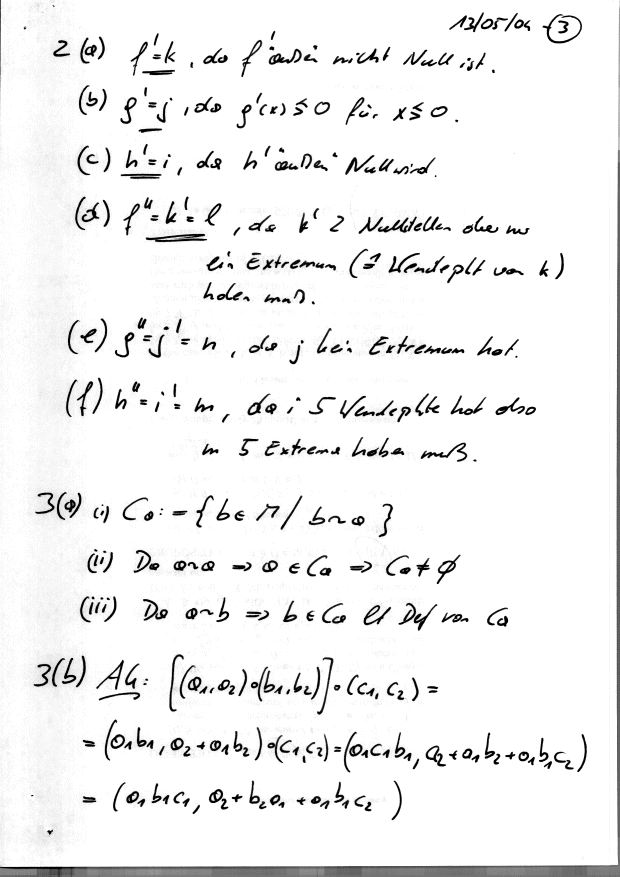 13/05/04 - 3
2 (a) f'=k, da f' außen nicht Null ist.
(b) g'=j, da g'(x) ≤ 0 für x ≤ 0.
(c) h'=i, da h' außen Null wird.
(d) f''=k'=l, da k' 2 Nullstellen aber nur
ein Extremum (1 Wendepkt von k)
haben muß.
(e) g''=j'=n, da j kein Extremum hat.
(f) h''=i'=m, da i 5 Wendepkte hat also
m 5 Extrema haben muß.
3(a) (i) Ca := {b∈M / b~a}
(ii) Da a~a ⇒ a ∈ Ca ⇒ Ca ≠ ∅
(iii) Da a~b ⇒ b ∈ Ca lt Def von Ca
3(b) AG: [(a₁,a₂)∘(b₁,b₂)]∘(c₁,c₂) =
= (a₁b₁, a₂+a₁b₂)∘(c₁,c₂) = (a₁c₁b₁, a₂+a₁b₂+a₁b₁c₂)
= (a₁b₁c₁, a₂+b₂a₁+a₁b₁c₂)